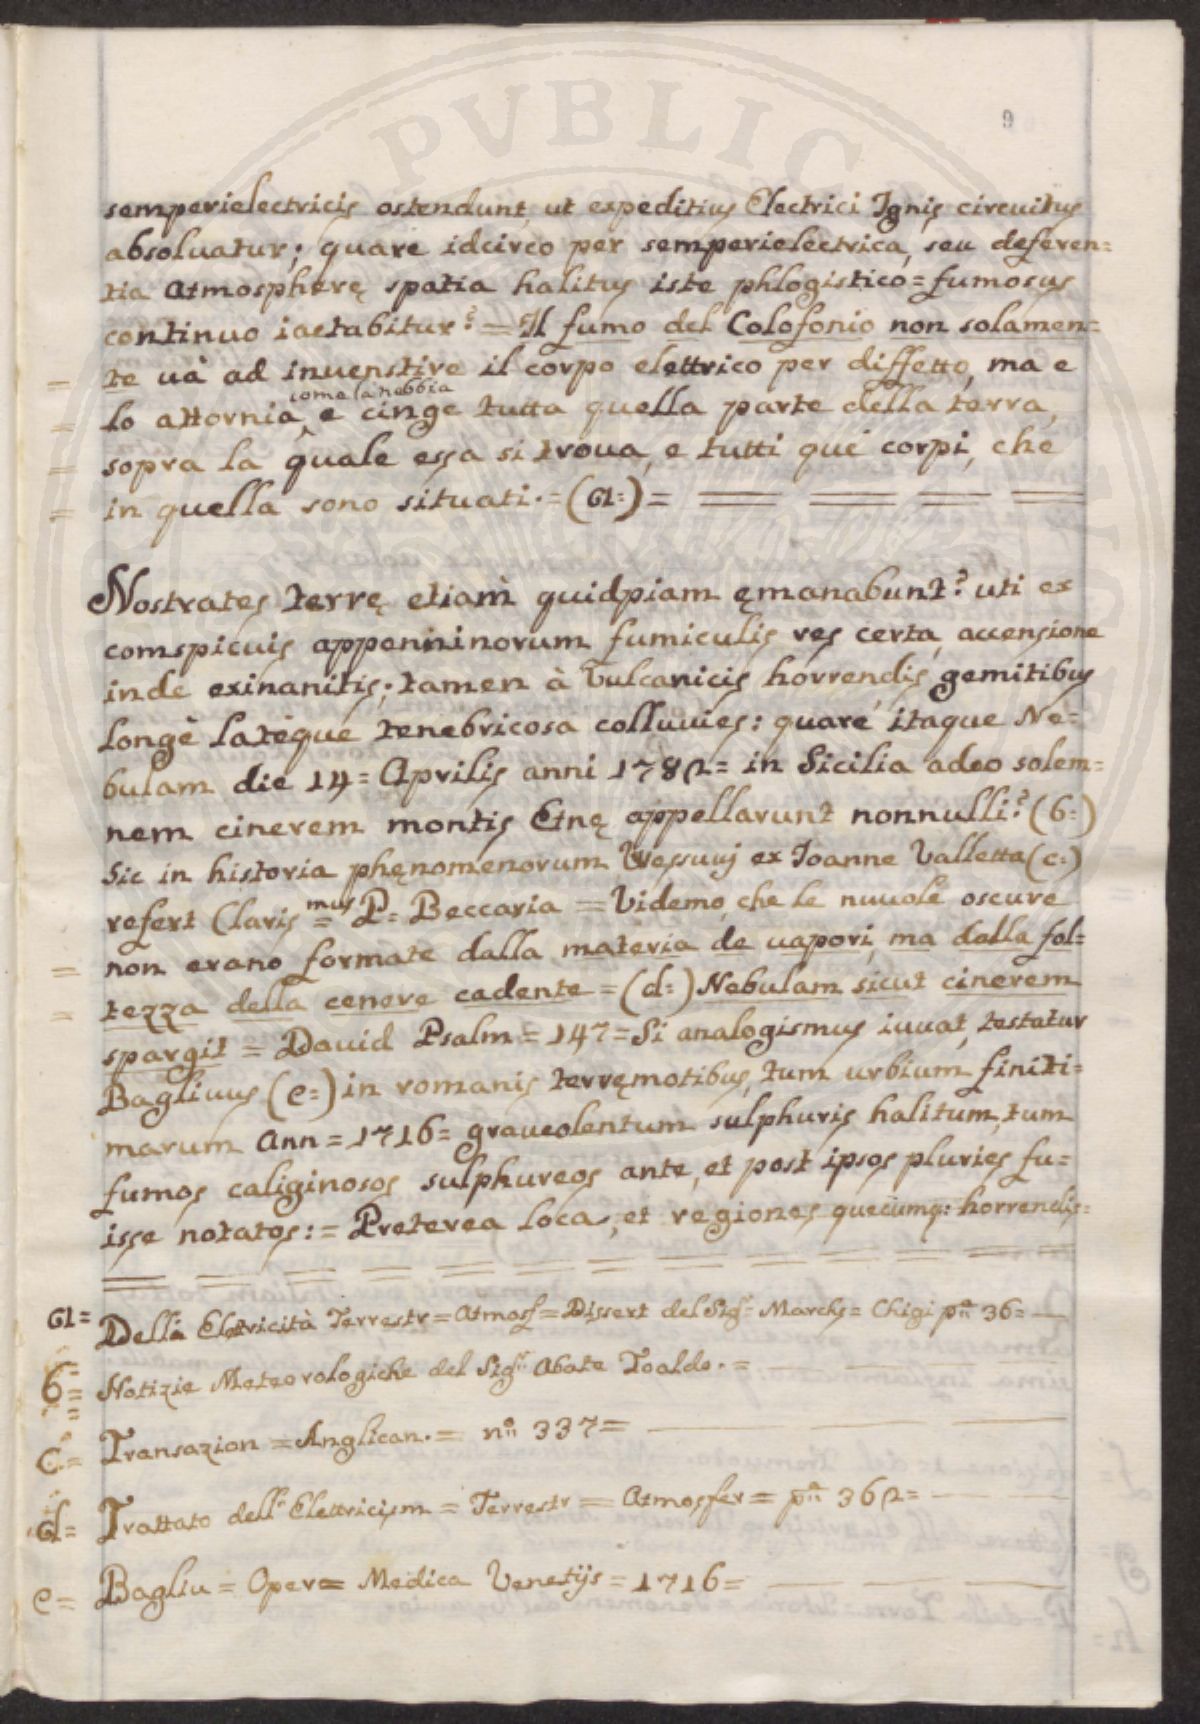 PVBLIC
9
semperielectricis ostendunt, ut expeditius Electrici Ignis circuitus
absoluatur; quare idcirco per semperielectrica, seu deferen=
tia Atmospherę spatia halitus iste phlogistico=fumosus
continuo iactabitur? = Il fumo del Colofonio non solamen=
= te uà ad inuenstire il corpo elettrico per diffetto, ma e
come la nebbia
= lo attornia, e cinge tutta quella parte della terra,
= sopra la quale essa si troua, e tutti que' corpi, che
= in quella sono situati. = (a=) =
Nostrates terrę etiam quidpiam ęmanabunt? uti ex
comspicuis appenninorum fumiculis res certa, accensione
inde exinanitis; tamen à Vulcanicis horrendis gemitibus
longè latèque tenebricosa colluuies: quare itaque Ne=
bulam die 14= Aprilis anni 1782= in Sicilia adeo solem=
nem cinerem montis Etnę appellarunt nonnulli? (b=)
Sic in historia phęnomenorum Vessuuij ex Joanne Valletta (c=)
refert Claris=mus P= Beccaria = Videmo, che le nuuole oscure
= non erano formate dalla materia de uapori, ma dalla fol=
= tezza della cenere cadente = (d=) Nebulam sicut cinerem
spargit = Dauid Psalm = 147 = Si analogismus iuuat, testatur
Bagliuus (e=) in romanis terręmotibus, tum urbium finiti=
marum Ann = 1716 = graueolentum sulphuris halitum, tum
fumos caliginosos sulphureos ante, et post ipsos pluries fu=
isse notatos: = Preterea loca, et regiones quecumq: horrendis=
a= Della Elettricità Terrestr = Atmosf = Dissert del Sigr Marchs = Chigi pna 36=
b= Notizie Meteorologiche del Sigr Abate Toaldo. =
c= Transazion = Anglican. = no 337=
d= Trattato dell' Elettricism = Terrestr = Atmosfer = pna 362=
e= Bagliu = Oper = Medica Venetijs = 1716=